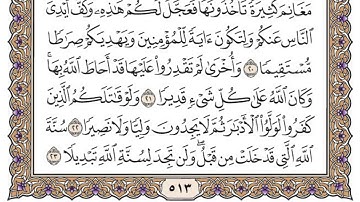 مَغَانِمَ كَثِيرَةً تَأۡخُذُونَهَا فَعَجَّلَ لَكُمۡ هَٰذِهِۦ وَكَفَّ أَيۡدِيَ
ٱلنَّاسِ عَنكُمۡ وَلِتَكُونَ ءَايَةٗ لِّلۡمُؤۡمِنِينَ وَيَهۡدِيَكُمۡ صِرَٰطٗا
مُّسۡتَقِيمٗا ٢٠ وَأُخۡرَىٰ لَمۡ تَقۡدِرُواْ عَلَيۡهَا قَدۡ أَحَاطَ ٱللَّهُ بِهَاۚ
وَكَانَ ٱللَّهُ عَلَىٰ كُلِّ شَيۡءٖ قَدِيرٗا ٢١ وَلَوۡ قَٰتَلَكُمُ ٱلَّذِينَ
كَفَرُواْ لَوَلَّوُاْ ٱلۡأَدۡبَٰرَ ثُمَّ لَا يَجِدُونَ وَلِيّٗا وَلَا نَصِيرٗا ٢٢ سُنَّةَ
ٱللَّهِ ٱلَّتِي قَدۡ خَلَتۡ مِن قَبۡلُۖ وَلَن تَجِدَ لِسُنَّةِ ٱللَّهِ تَبۡدِيلٗا ٢٣
٥١٣